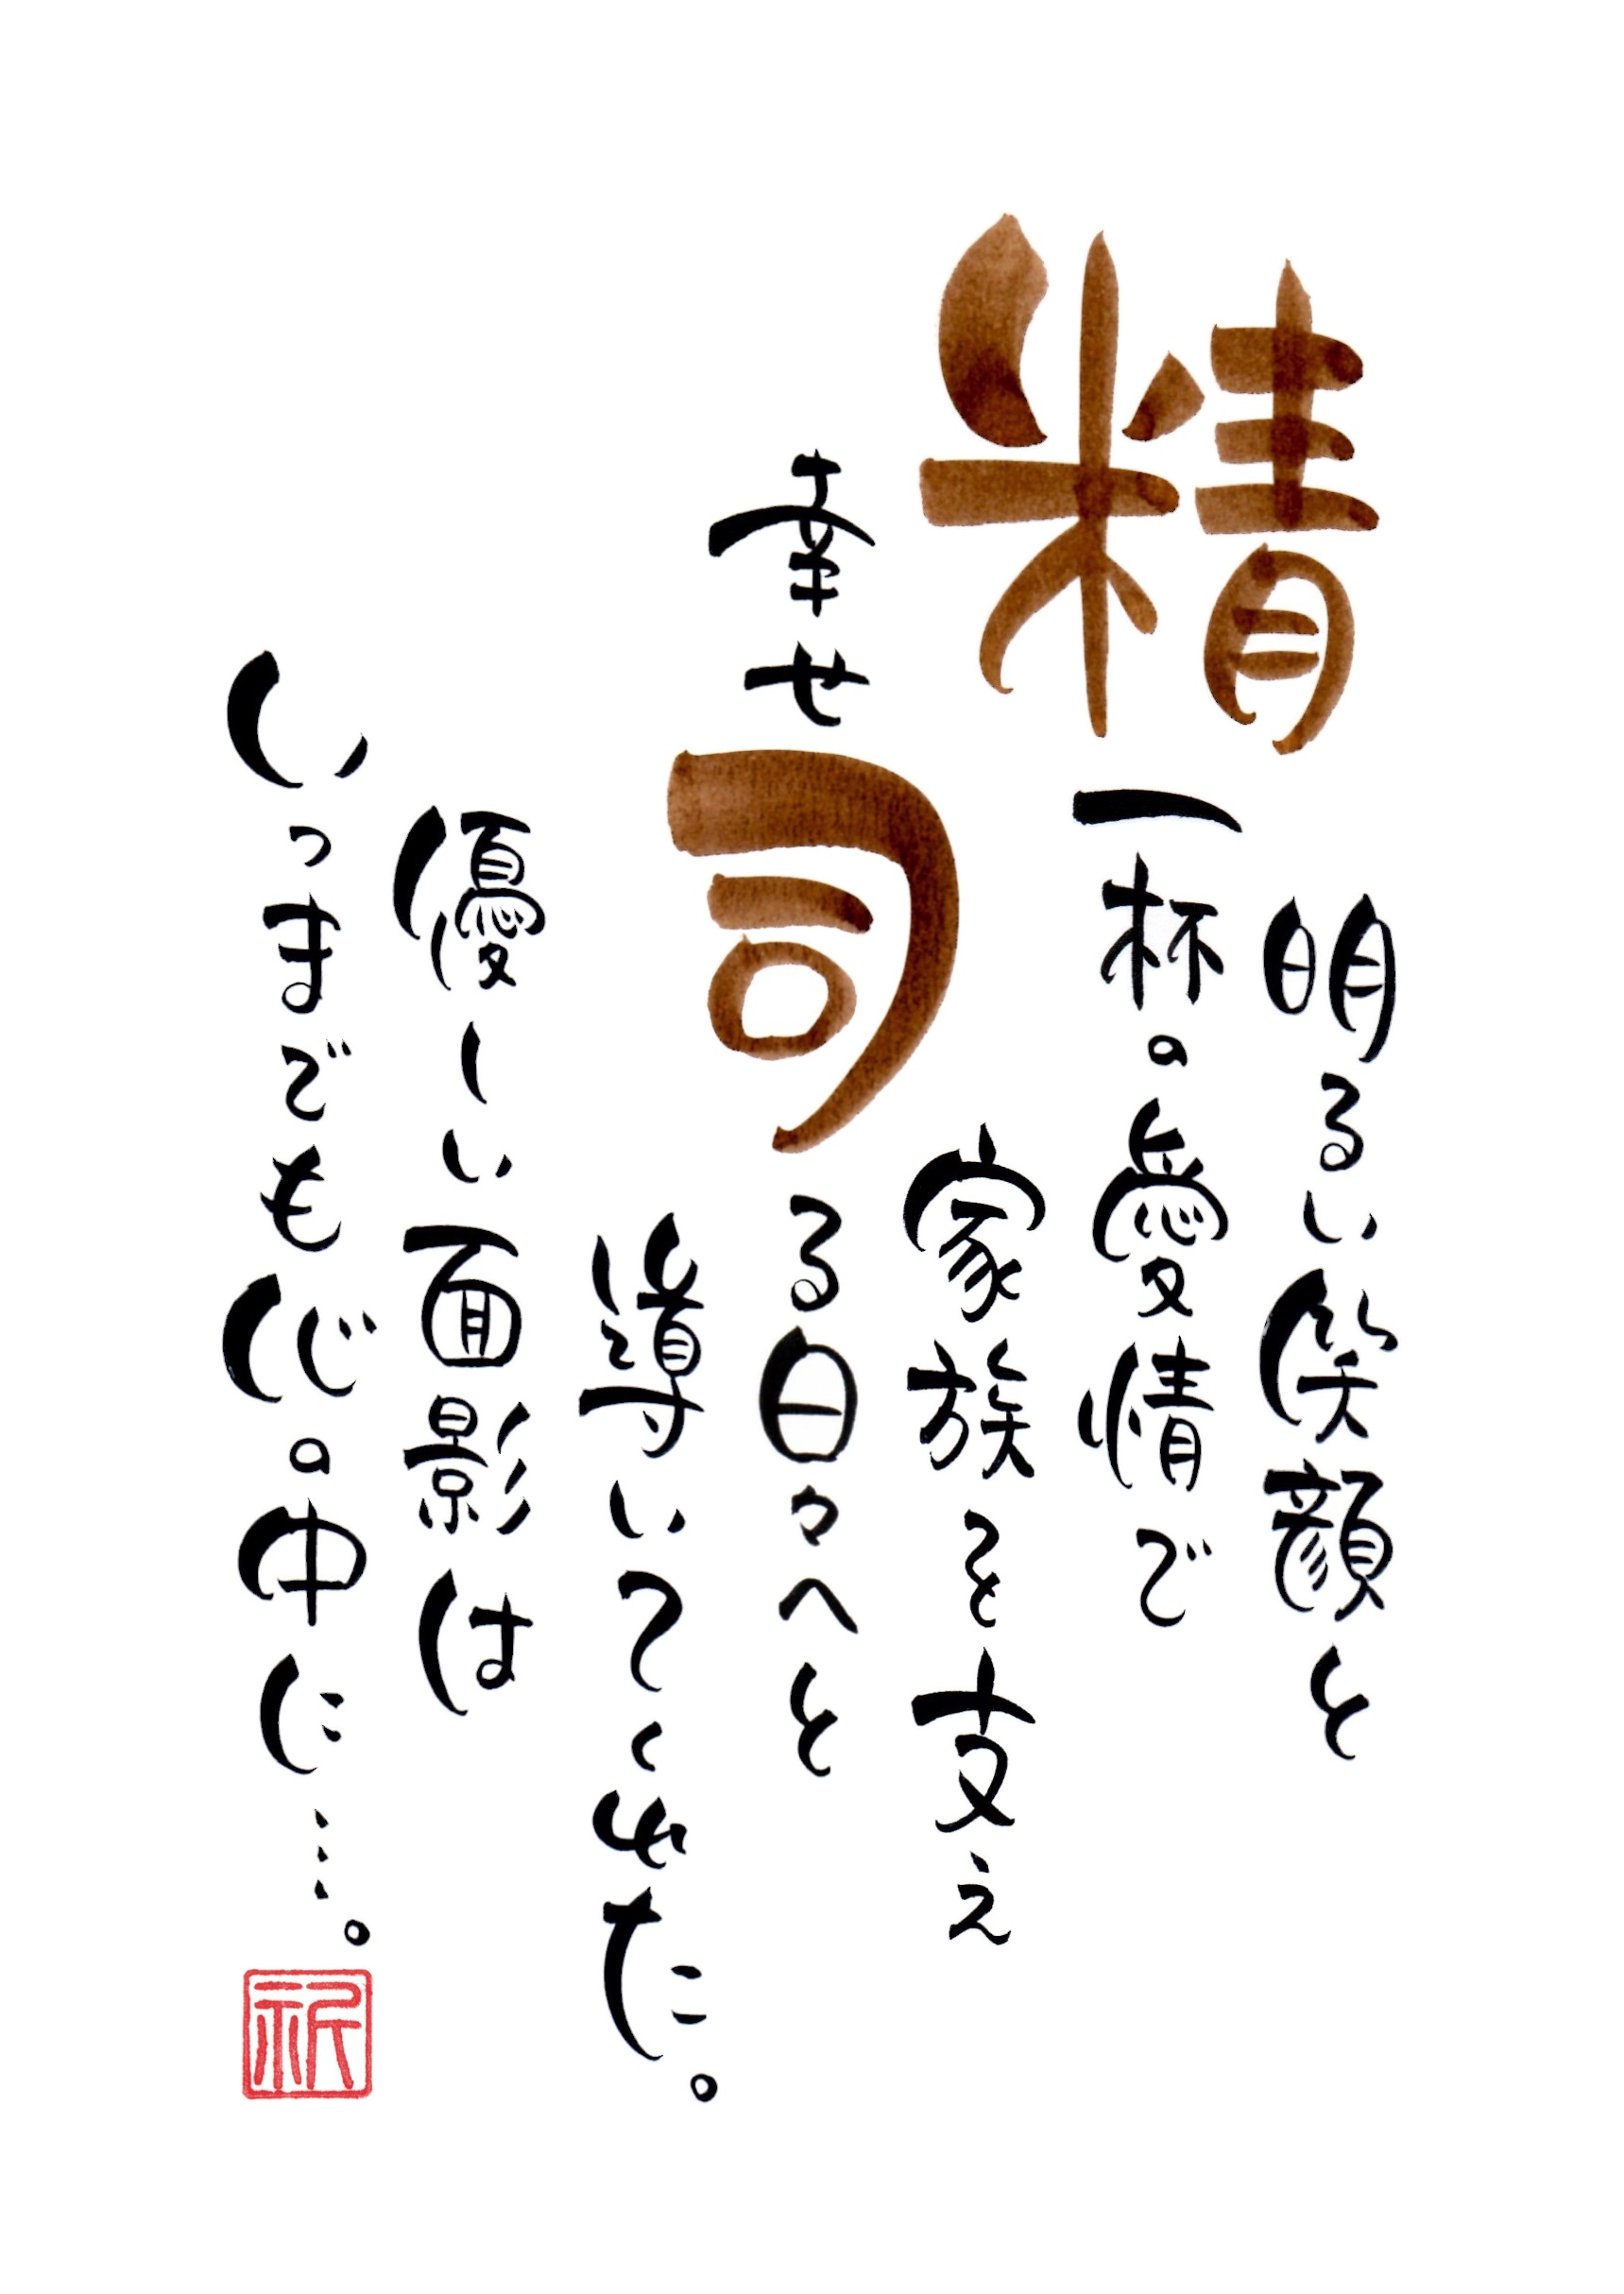 明るい笑顔と
精一杯の愛情で
家族を支え
幸せ司る日々へと
導いてくれた。
優しい面影は
いつまでも心の中に…。